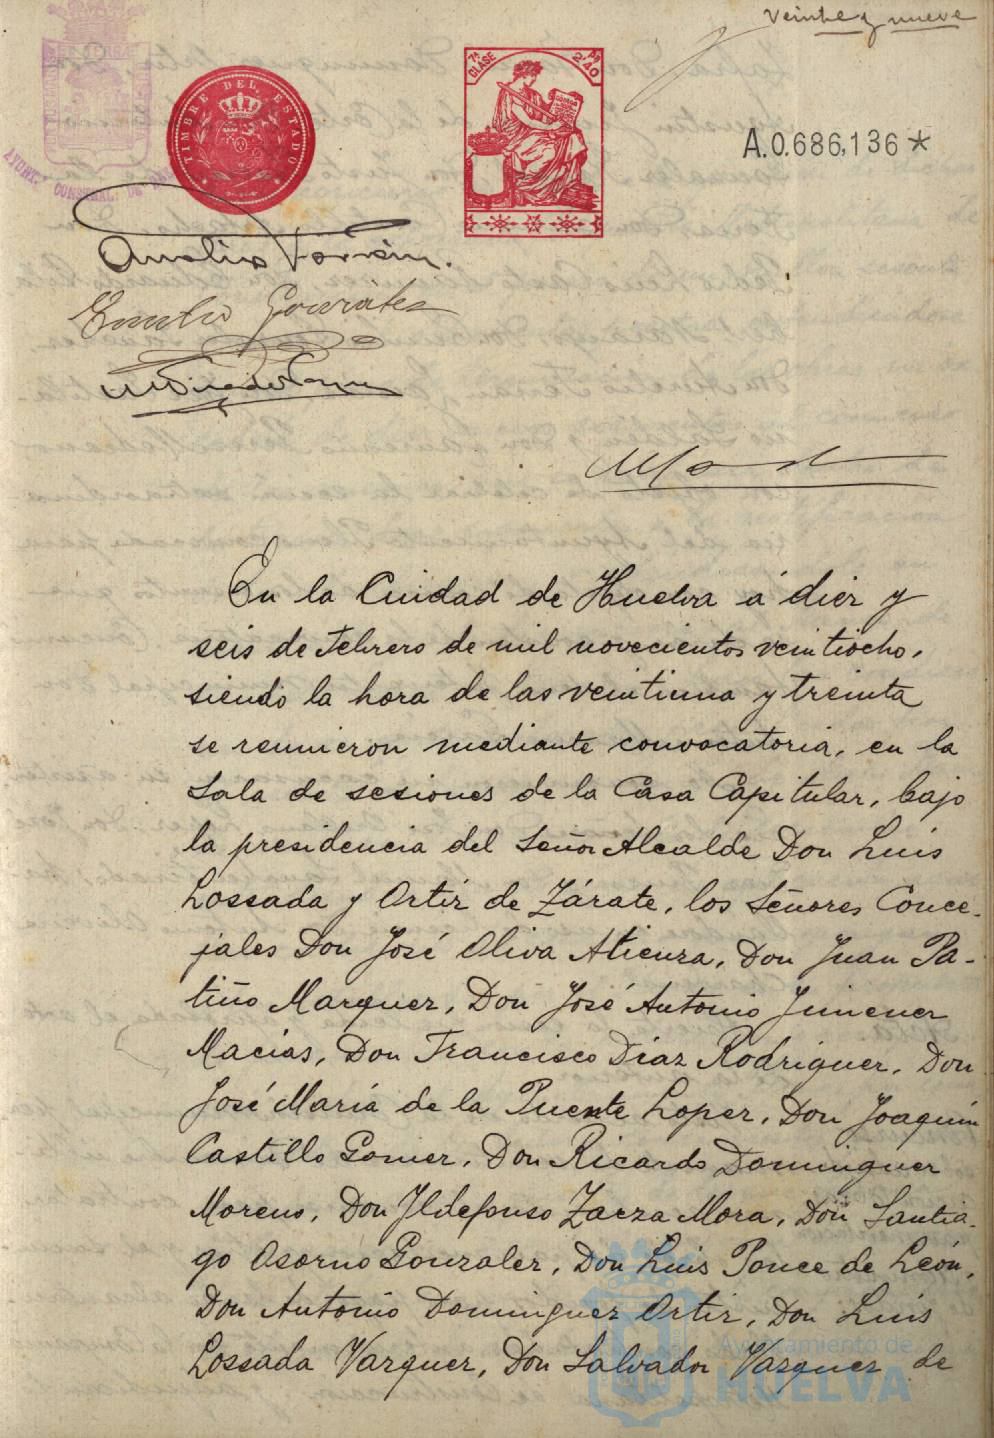 veinte y nueve
TIMBRE DEL ESTADO
7ª CLASE
2'40
A.0.686,136*
Aurelio
Emilio González
En la Cuidad de Huelva á diez y
seis de Febrero de mil novecientos veintiocho,
siendo la hora de las veintiuna y treinta
se reunieron mediante convocatoria, en la
Sala de sesiones de la Casa Capitular, bajo
la presidencia del Señor Alcalde Don Luis
Lossada y Ortiz de Zárate, los Señores Conce-
jales Don José Oliva Atienza, Don Juan Pa-
tiño Marquez, Don José Antonio Jimenez
Macías, Don Francisco Díaz Rodriguez, Don
José María de la Puente Lopez, Don Joaquin
Castillo Gomez, Don Ricardo Dominguez
Moreno, Don Ildefonso Zarza Mora, Don Santia-
go Osorno Gonzalez, Don Luis Ponce de León,
Don Antonio Dominguez Ortiz, Don Luis
Lossada Vazquez, Don Salvador Vazquez de
Ayuntamiento de
HUELVA